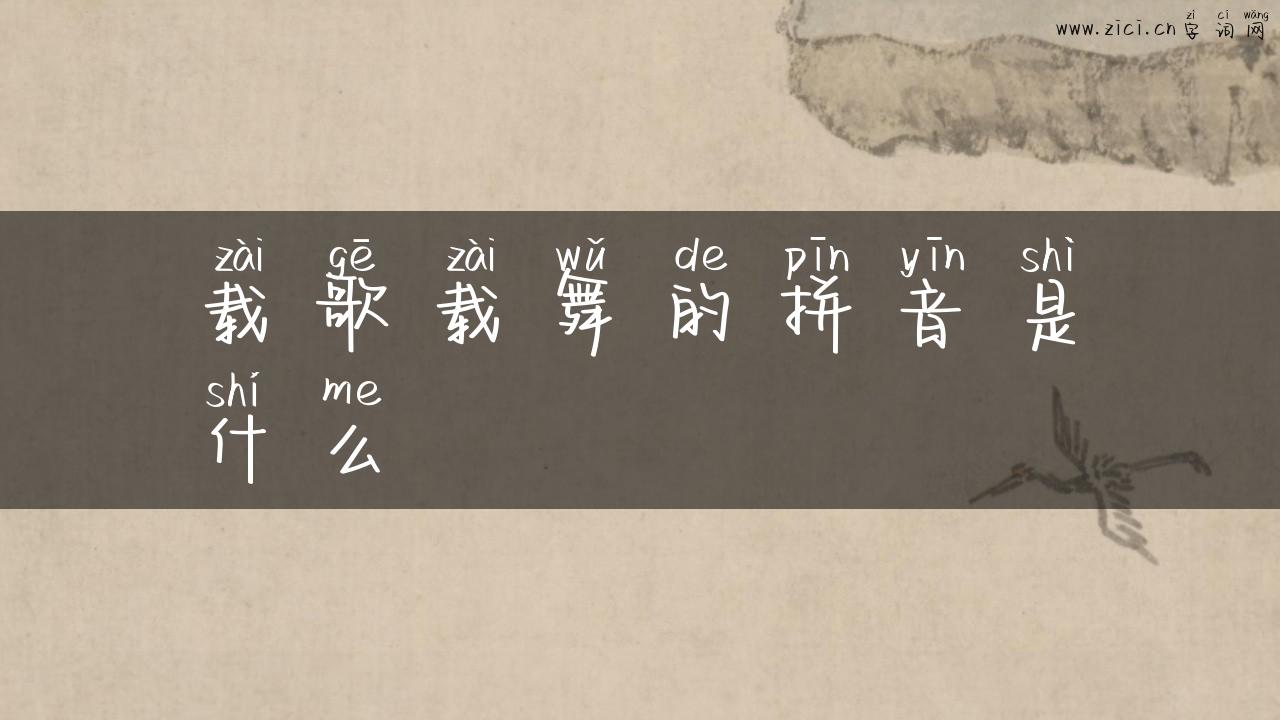 zì cí wǎng
www.zici.cn 字 词 网
zài gē zài wǔ de pīn yīn shì
载 歌 载 舞 的 拼 音 是
shí me
什 么